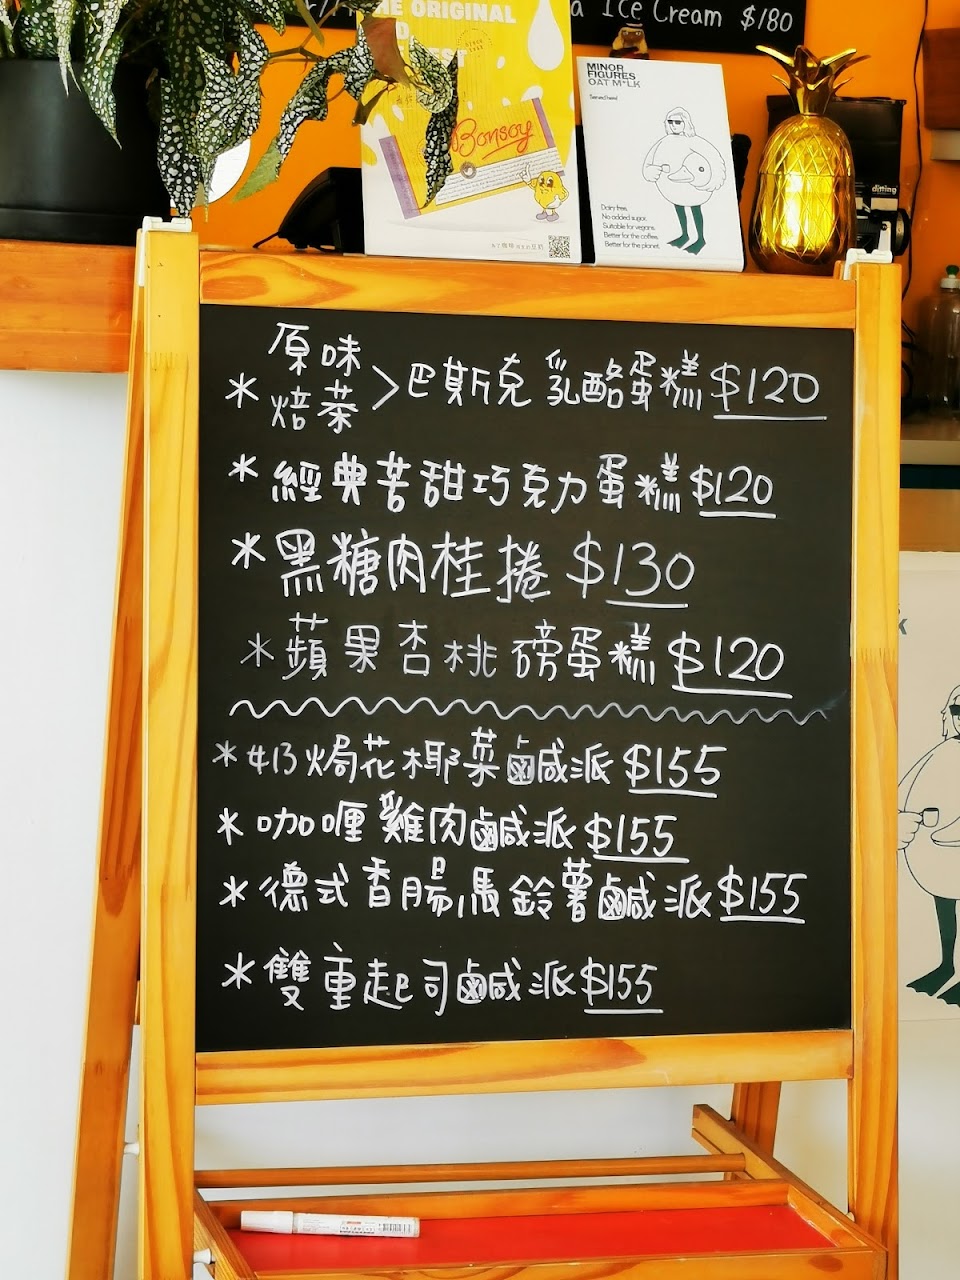 a Ice Cream $180
THE ORIGINAL
Bonsoy
MINOR
FIGURES
OAT M*LK
Dairy free.
No added sugar.
Suitable for vegans.
Better for the coffee.
Better for the planet.
ditting
原味
* 焙茶 > 巴斯克 乳酪蛋糕 $120
* 經典苦甜巧克力蛋糕 $120
* 黑糖肉桂捲 $130
* 蘋果杏桃磅蛋糕 $120
* 413焗花椰菜鹹派 $155
* 咖喱雞肉鹹派 $155
* 德式香腸馬鈴薯鹹派 $155
* 雙重起司鹹派 $155